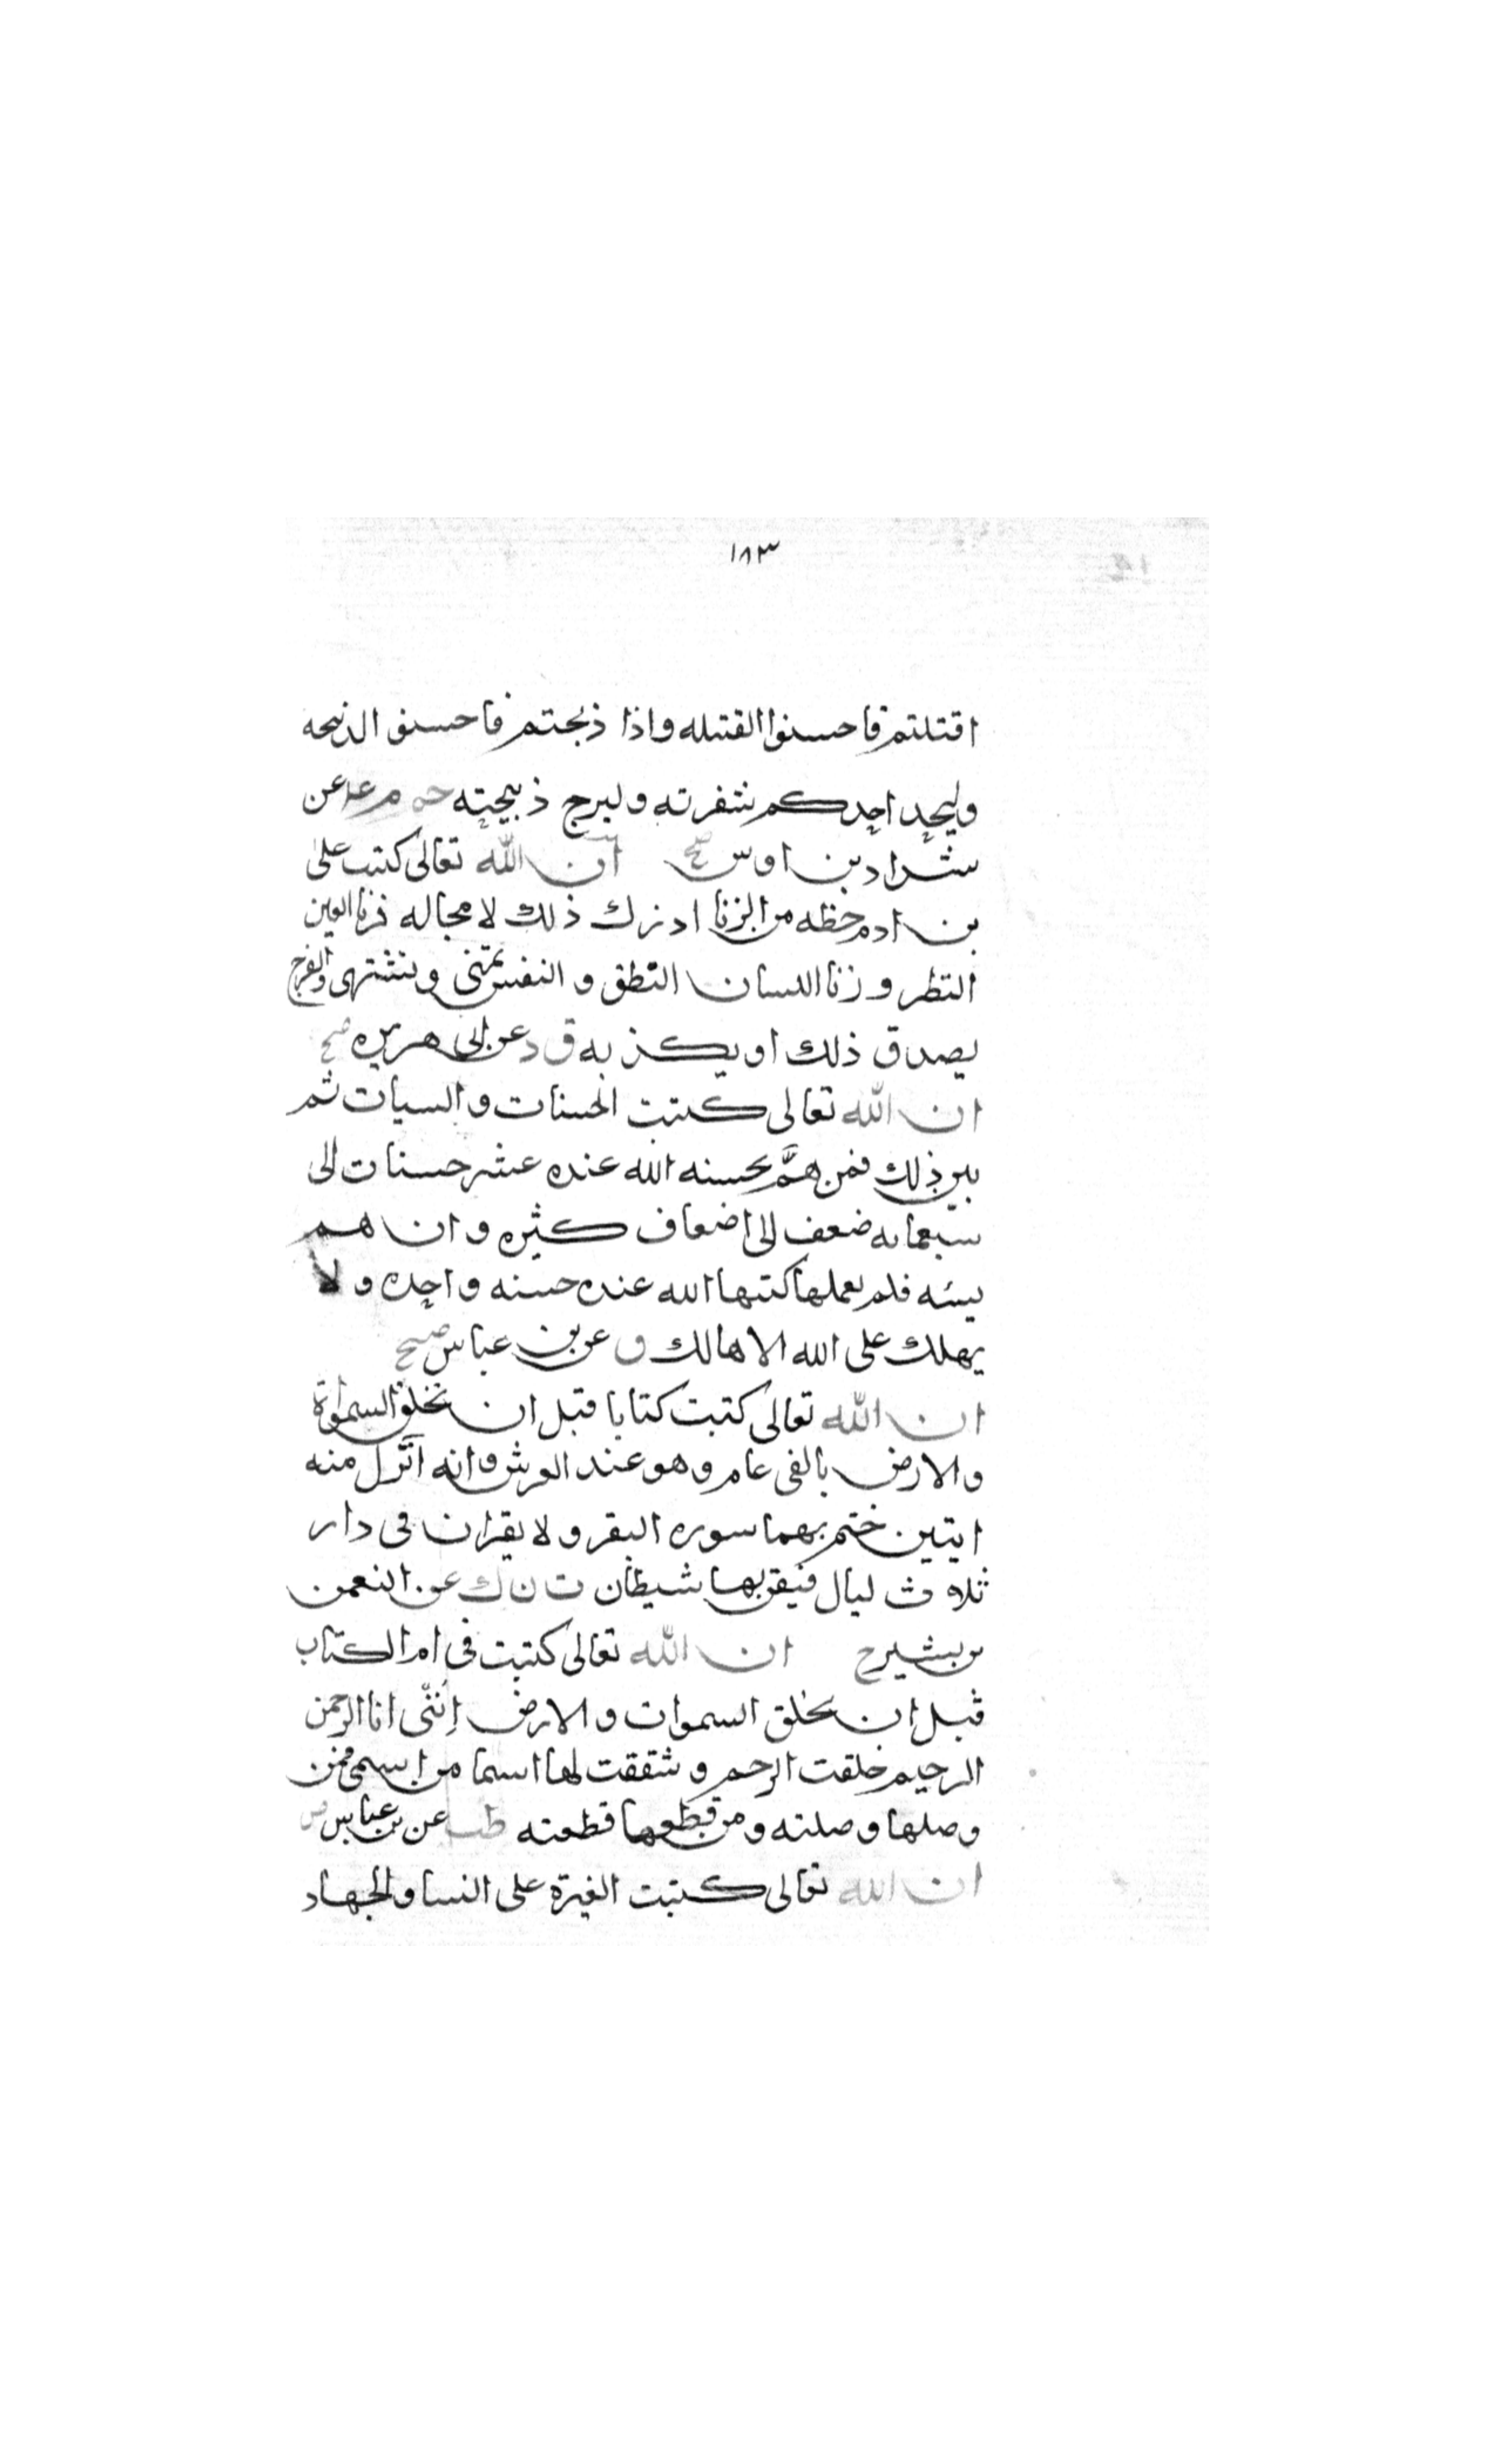 ١٨٣
اقتلتم فاحسنوا القتله واذا ذبحتم فاحسنو الذبيحه
وليحد احدكم شفرته وليرح ذبيحته حم م عد عن
شداد بن اوس صح ان الله تعالى كتب على
بن ادم حظه من الزنا ادرك ذلك لا محاله فزنا العين
النظر وزنا اللسان النطق و النفس تمنى وتشتهى والفرج
يصدق ذلك او يكذبه ق د عن ابى هريره صح
ان الله تعالى كتبت الحسنات والسيات ثم
بين ذلك فمن همَّ بحسنه الله عنده عشر حسنات الى
سبعمايه ضعف الى اضعاف كثيره وان هم
بسئه فلم يعملها كتبها الله عنده حسنه واحده ولا
يهلك على الله الا هالك ق عن بن عباس صح
ان الله تعالى كتبت كتابا قبل ان يخلق السمواة
والارض بالفى عام وهو عند العرش وانه انزل منه
ايتين ختم بهما سوره البقر ولا يقران فى دار
ثلاث ليال فيقربها شيطان ت ن ك عن النعمن
بن بشير ح ان الله تعالى كتبت فى ام الكتاب
قبل ان يخلق السموات والارض اِننّى انا الرحمن
الرحيم خلقت الرحم وشققت لها اسما من اسمى فمن
وصلها وصلته ومن قطعها قطعته طب عن بن عباس ض
ان الله تعالى كتبت الغيرة على النسا والجهاد